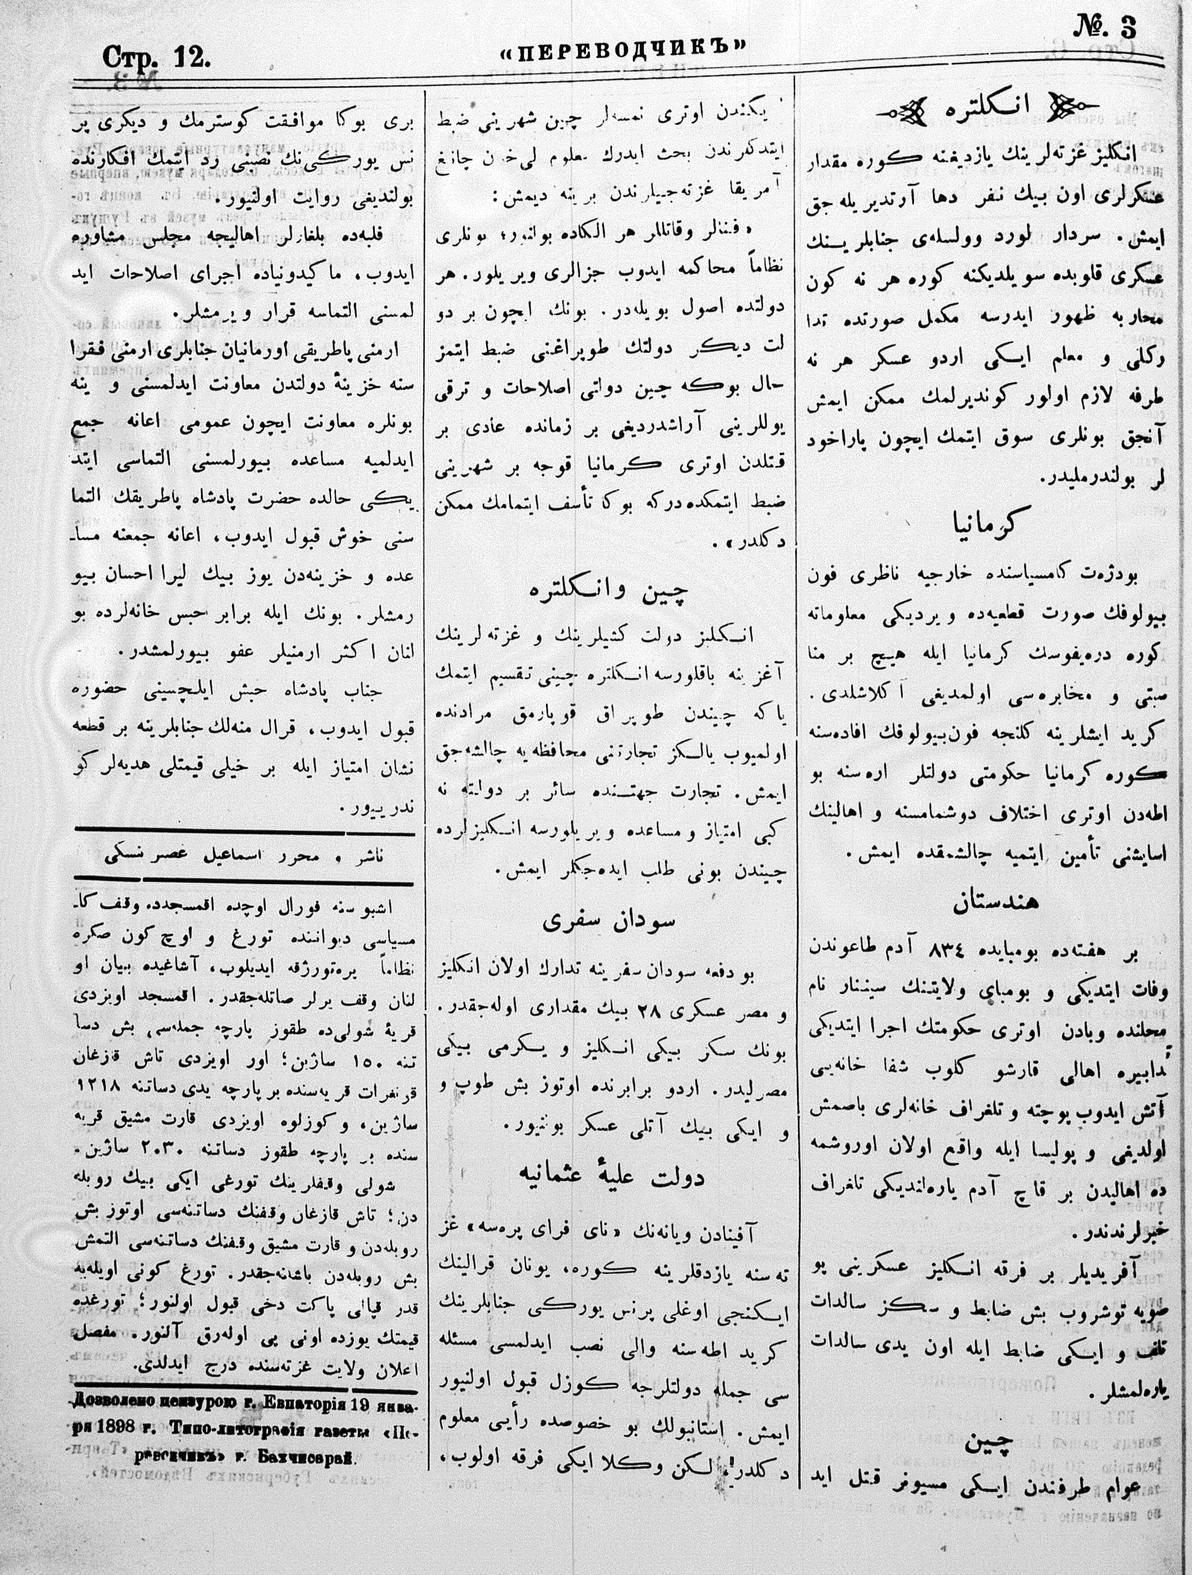 Стр. 12.
«ПЕРЕВОДЧИКЪ»
№. 3
انكلتره
انكليز غزته‌لرينك يازديغنه كوره مقدار
عسكرلرى اون بيك نفر دها آرتديريله جق
ايمش. سردار لورد وولسله‌ى جنابلرينك
عسكرى قلوبده سويلديكنه كوره هر نه كون
محاربه ظهور ايدرسه مكمل صورتده تدا
ركلى و معلم ايكى اردو عسكر هر نه
طرفه لازم اولور كونديرلمك ممكن ايمش
آنجق بونلرى سوق ايتمك ايچون پاراخود
لر بولندرمليدر.
كرمانيا
بودژه‌ت كامسياسنده خارجيه ناظرى فون
بيولوفك صورت قطعيه‌ده ويرديكى معلوماته
كوره دره‌يفوسك كرمانيا ايله هيچ بر منا
سبتى و مخابره‌سى اولمديغى آكلاشلدى.
كريد ايشلرينه كلنجه فون‌بيولوفك افاده‌سنه
كوره كرمانيا حكومتى دولتلر اره‌سنه بو
اطه‌دن اوترى اختلاف دوشمامسنه و اهالينك
اسايشنى تأمين ايتميه چالشمقده ايمش.
هندستان
بر هفته‌ده بومبايده ٨٣٤ آدم طاعوندن
وفات ايتديكى و بومباى ولايتنك سيننار نام
محلنده وبادن اوترى حكومتك اجرا ايتديكى
تدابيره اهالى قارشو كلوب شفا خانه‌يى
آتش ايدوب پوچته و تلغراف خانه‌لرى باصمش
اولديغى و پوليسا ايله واقع اولان اوروشمه
ده اهاليدن بر قاچ آدم ياره‌لنديكى تلغراف
خبرلرندندر.
آفريديلر بر فرقه انكليز عسكرينى پو
صويه توشروب بش ضابط و سكز سالدات
تلف و ايكى ضابط ايله اون يدى سالدات
ياره‌لمشلر.
چين
عوام طرفندن ايكى مسيونر قتل ايد
يكندن اوترى نمسه‌لر چين شهرينى ضبط
ايتدكلرندن بحث ايدرك معلوم لى‌خون چانغ
آمريقا غزته‌جيلرندن برينه ديمش:
« فنالر وقاتللر هر الكاده بولنور؛ بونلرى
نظاماً محاكمه ايدوب جزالرى ويريلور. هر
دولتده اصول بويله‌در. بونك ايچون بر دو
لت ديكر دولتك طوپراغنى ضبط ايتمز
حال بوكه چين دولتى اصلاحات و ترقى
يوللرينى آراشدرديغى بر زمانده عادى بر
قتلدن اوترى كرمانيا قوجه بر شهرينى
ضبط ايتمكده‌دركه بوكا تأسف ايتمامك ممكن
دكلدر».
چين وانكلتره
انكليز دولت كشيلرينك و غزته‌لرينك
آغزينه باقلورسه انكلتره چينى تقسيم ايتمك
ياكه چيندن طوپراق قوپارمق مرادنده
اولميوب يالكز تجارتنى محافظه‌يه چالشه‌جق
ايمش. تجارت جهتنده سائر بر دولته نه
كبى امتياز و مساعده ويريلورسه انكليزلرده
چيندن بونى طلب ايده‌جكلر ايمش.
سودان سفرى
بو دفعه سودان سفرينه تدارك اولان انكليز
و مصر عسكرى ٢٨ بيك مقدارى اوله‌جقدر.
بونك سكز بيكى انكليز و يكرمى بيكى
مصرليدر. اردو برابرنده اوتوز بش طوپ و
و ايكى بيك آتلى عسكر بولنيور.
دولت عليهٔ عثمانيه
آفينادن ويانه‌نك «ناى فراى پره‌سه» غز
ته‌سنه يازدقلرينه كوره، يونان قرالينك
ايكنجى اوغلى پرنس يوركى جنابلرينك
كريد اطه‌سنه والى نصب ايدلمسى مسئله
سى جمله دولتلرجه كوزل قبول اولنيور
ايمش. استانبولك بو خصوصده رأيى معلوم
دكلدر؛ لكن وكلا ايكى فرقه اولوب،
برى بوكا موافقت كوسترمك و ديكرى پر
نس يوركى‌نك نصبنى رد ايتمك افكارنده
بولنديغى روايت اولنيور.
فلبه‌ده بلغارلر اهاليجه مجلس مشاوره
ايدوب، ماكيدونياده اجراى اصلاحات ايد
لمسنى التماسه قرار ويرمشلر.
ارمنى پاطريقى اورمانيان جنابلرى ارمنى فقرا
سنه خزينهٔ دولتدن معاونت ايدلمسنى و ينه
بونلره معاونت ايچون عمومى اعانه جمع
ايدلميه مساعده بيورلمسنى التماسى ايتد
يكى حالده حضرت پادشاه پاطريقك التما
سنى خوش قبول ايدوب، اعانه جمعنه مسا
عده و خزينه‌دن يوز بيك ليرا احسان بيو
رمشلر. بونك ايله برابر حبس خانه‌لرده بو
لنان اكثر ارمنيلر عفو بيورلمشدر.
جناب پادشاه حبش ايلچيسنى حضوره
قبول ايدوب، قرال منه‌لك جنابلرينه بر قطعه
نشان امتياز ايله بر خيلى قيمتلى هديه‌لر كو
ندرييور.
ناشر و محرر اسماعيل غصپرنسكى
اشبو سنه فورال اوچده اقمسجدده وقف كا
مسياسى ديواننده تورغ و اوچ كون صكره
نظاماً پره‌تورژقه ايديلوب، آشاغيده بيان او
لنان وقف يرلر صاتله‌جقدر. اقمسجد اويزدى
قريهٔ شولى‌ده طقوز پارچه جمله‌سى بش دسا
تنه ١٥٠ ساژين؛ اور اويزدى تاش قازغان
قرنفرات قريه‌سنده بر پارچه يدى دساتنه ١٢١٨
ساژين، و كوزلوه اويزدى قارت مشيق قريه
سنده بر پارچه طقوز دساتنه ٢٠٣٠ ساژين.
شولى وقفلرينك تورغى ايكى بيك روبله
دن؛ تاش قازغان وقفنك دساتنه‌سى اوتوز بش
روبله‌دن و قارت مشيق وقفنك دساتنه‌سى التمش
بش روبله‌دن باشلنه‌جقدر. تورغ كونى اويله‌يه
قدر قپالى پاكت دخى قبول اولنور؛ تورغده
قيمتك يوزده اونى پى اوله‌رق آلنور. مفصل
اعلان ولايت غزته‌سنده درج ايدلدى.
Дозволено цензурою г. Евпаторія 19 янва-
ря 1898 г. Типо-литографія газеты «Пе-
реводчикъ» г. Бахчисарай.